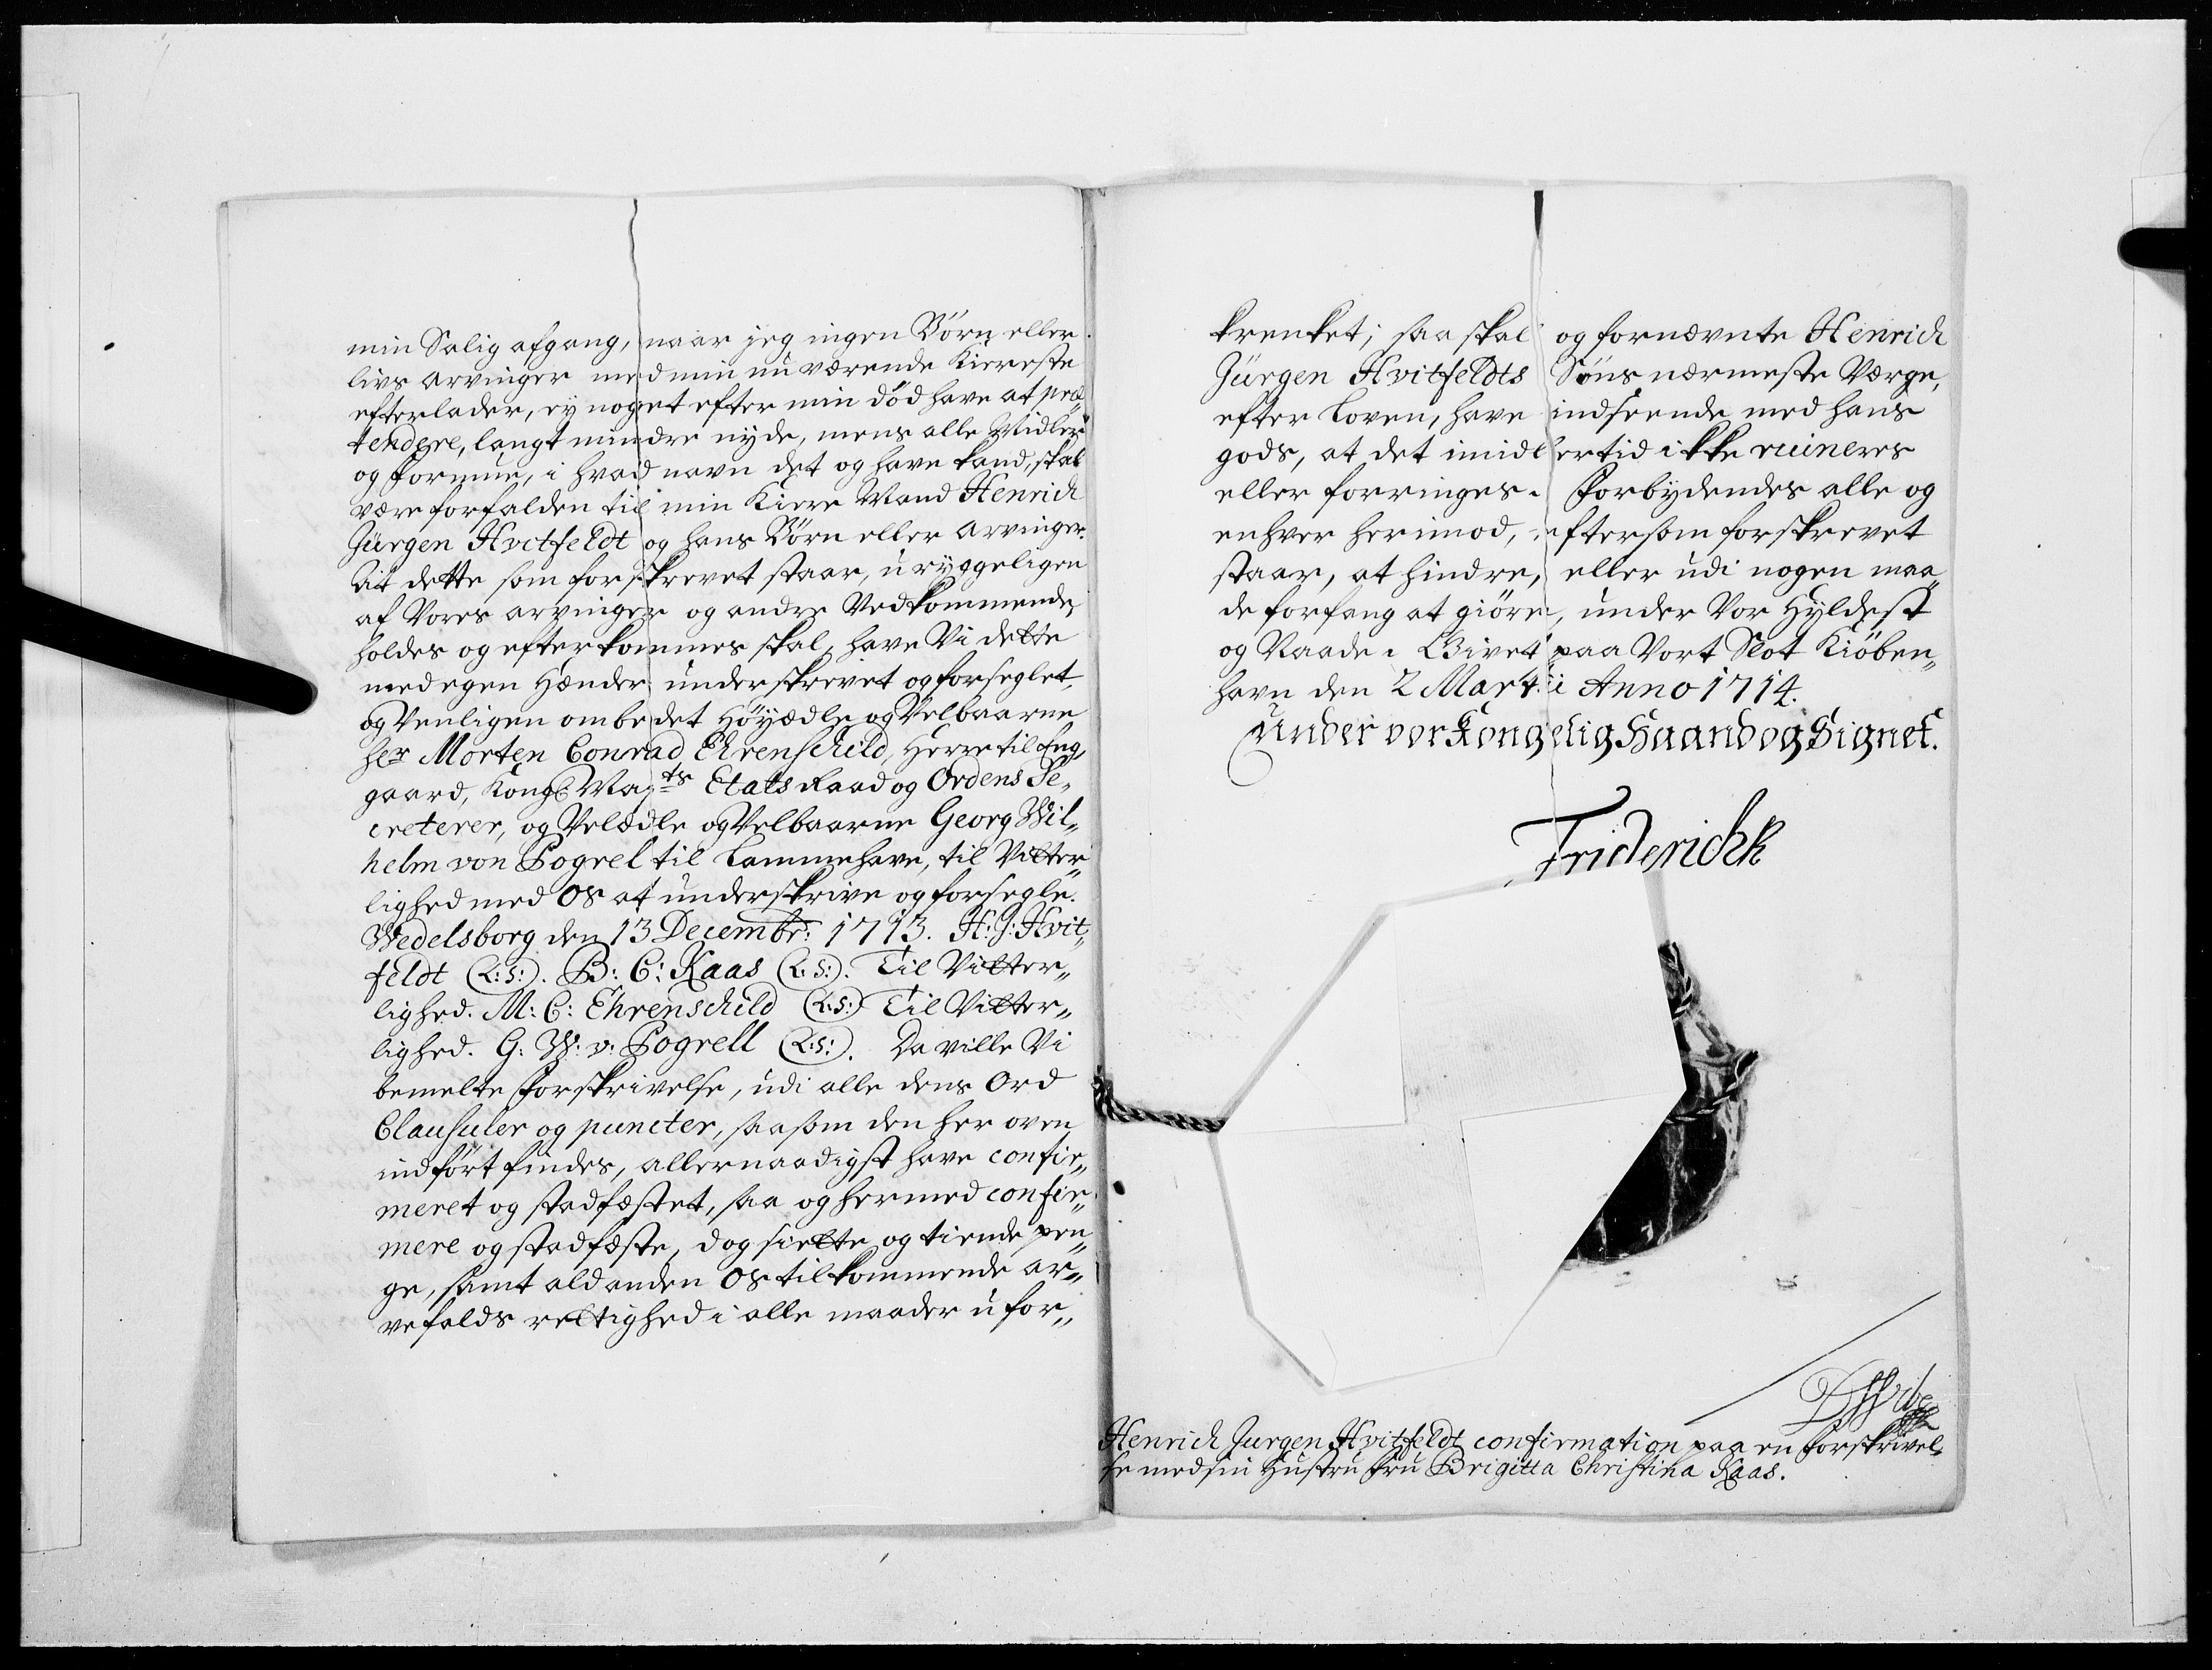 min Salig afgang, naar jeg ingen Börn eller
livs arvinger med min nu værende Kiereste
efterlader, ey noget efter min död have at præ„
tendere, langt mindre nyde, mens alle Midler
og formue, i hvad navn det og have kand, skal
være forfalden til min Kiere Mand Henrich
Jürgen Hvitfeldt og hans Börn eller arvinger.
At dette som forskrevet staar, uryggeligen
af Vores arvinger og andre Vedkommende
holdes og efterkommes skal, have Vi dette
med egen Hænder underskrevet og forseglet,
og Venligen ombedet Höyædle og Velbaarne
Her Morten Conrad Ehrenschild, Herre til Eng„
gaard, Kongl Mayts Etats Raad og Ordens Se„
creterer, og Velædle og Velbaarne Georg Wil„
helm von Pogrel til Lammehave, til Vitter„
lighed med Os at underskrive og forsegle.
Wedelsborg den 13 Decembr: 1713. H: J: Hvit„
feldt (L:S:). B: C: Kaas (L:S:). Til Vitter„
lighed. M: C: Ehrenschild (L:S:) Til Vitter„
lighed. G: W: v: Pogrell (L:S:). Da ville Vi
bemelte Forskrivelse, udi alle dens Ord
Clausuler og puncter, saasom den her oven
indfört findes, allernaadigst have confir„
meret og stadfæstet, saa og hermed confir„
mere og stadfæste, dog siette og tiende pen„
ge, samt ald anden Os tilkommende ar„
vefalds rettighed i alle maader ufor„
krenket; saa skal og fornævnte Henrich
Jürgen Hvitfeldts Söns nærmeste Værge,
efter Loven, have indseende med hans
gods, at det imidlertid ikke ruineres
eller forringes. Forbydendes alle og
enhver herimod, eftersom forskrevet
staar, at hindre, eller udi nogen maa„
de forfang at giöre, under Vor Hyldest
og Naade. Givet paa Vort Slot Kiöben„
havn den 2 Martii Anno 1714.
Under vor Kongelig Haand og Signet.
Friderich R
Henrich Jurgen Hvitfeldt confirmation paa en forskrivel„
se med sin Hustru Fru Brigitta Christina Kaas.